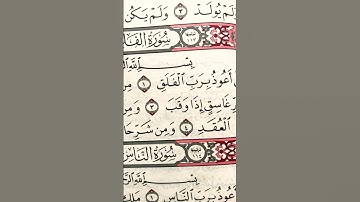 لَمْ يُولَدْ ٣ وَلَمْ يَكُن
سُورَةُ الْفَلَ
بِسْمِ ٱللَّهِ ٱلرَّ
أَعُوذُ بِرَبِّ ٱلْفَلَقِ ١ مِن
غَاسِقٍ إِذَا وَقَبَ ٣ وَمِ
ٱلْعُقَدِ ٤ وَمِن شَرِّ حَا
سُورَةُ النَّاسِ
بِسْمِ ٱللَّهِ ٱلرَّ
أَعُوذُ بِرَبِّ ٱلنَّاسِ ١ مَلِكِ